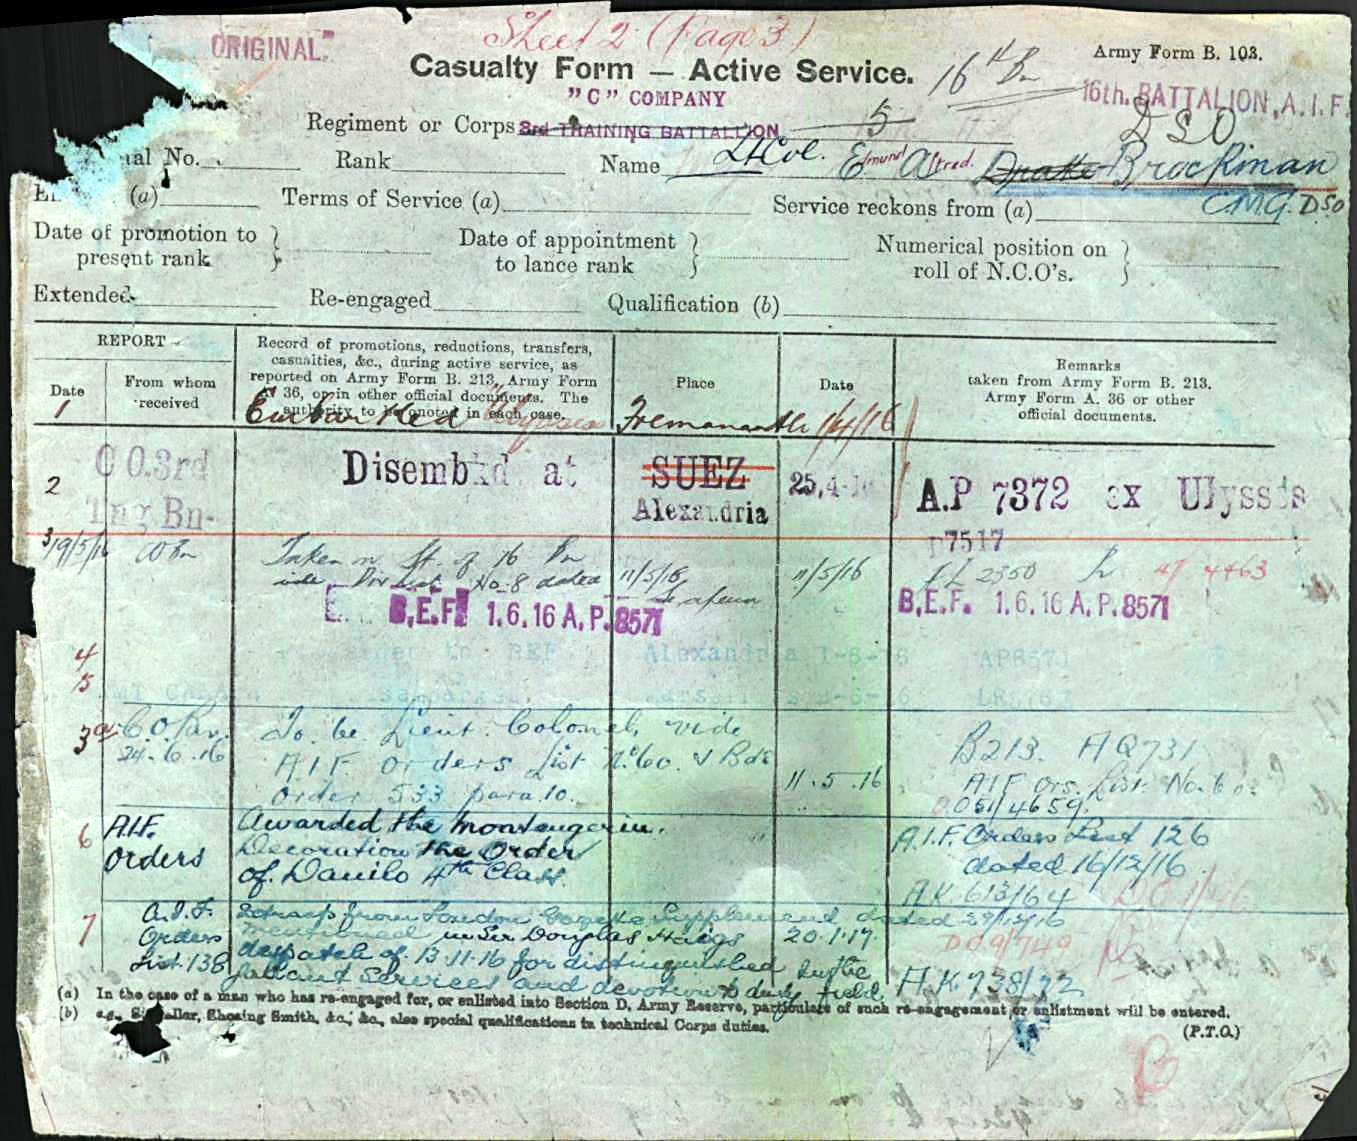 ORIGINAL.
Sheet 2 (Page 3)
Army Form B. 103.
Casualty Form — Active Service.
16th Bn
16th. BATTALION, A. I. F.
"C" COMPANY
Regiment or Corps 3rd TRAINING BATTALION 5
DSO
No. Rank Name Lt Col. Edmund Alfred. Drake Brockman
(a) Terms of Service (a) Service reckons from (a) C.M.G. DSO
Date of promotion to present rank
Date of appointment to lance rank
Numerical position on roll of N.C.O's.
Extended Re-engaged Qualification (b)
REPORT
Date
From whom received
Record of promotions, reductions, transfers, casualties, &c., during active service, as reported on Army Form B. 213, Army Form A. 36, or in other official documents. The authority to be quoted in each case.
Place
Date
Remarks
taken from Army Form B. 213.
Army Form A. 36 or other
official documents.
1 Embarked Ulysses Fremantle 1/4/16
2 C O. 3rd Tng Bn- Disembkd at SUEZ Alexandria 25.4.16 A.P 7372 ex Ulysses
D7517
3 19/5/16 CO Bn Taken on St. of 16 Bn 11/5/16 11/5/16 LL 2350 47 4463
No 8 dated
B.E.F. 1.6.16 A.P. 8571 B.E.F. 1.6.16 A.P. 8571
4 to BEF Alexandria 1-6-16 AP8571
5
3a 24.6.16 To be Lieut. Colonel, vide B213. AQ731
A.I.F. orders List No. 60. 4 Bde 11.5.16 AIF Ors. List. No. 60
order 533 para. 10. 051/4659.
6 A.I.F. Orders Awarded the montenegrin. A.I.F. Orders List 126
Decoration the Order dated 16/12/16
of. Danilo 4th Class. A.K. 613/64
7 A.I.F. Orders List. 138 Extract from London Gazette Supplement dated 29/12/16
mentioned in Sir Douglas Haigs 20.1.17. DD9/749
despatch of. 13.11.16 for distinguished
gallant services and devotion to duty in the field, A.K 738/22
(a) In the case of a man who has re-engaged for, or enlisted into Section D, Army Reserve, particulars of such re-engagement or enlistment will be entered.
(b) e.g., Signaller, Shoeing Smith, &c., &c., also special qualifications in technical Corps duties.
(P.T.O.)